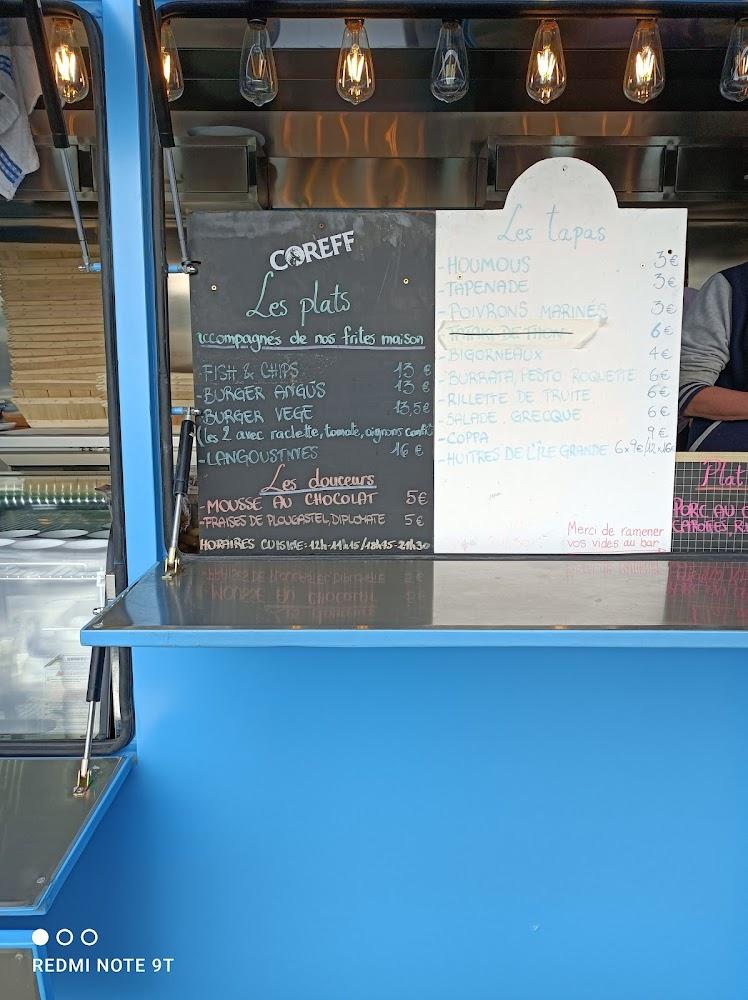 COREFF
Les plats
accompagnés de nos frites maison
-FISH & CHIPS 13 €
-BURGER ANGUS 13 €
-BURGER VEGE 13,5€
(les 2 avec raclette, tomate, oignons confit
-LANGOUSTINES 16 €
Les douceurs
-MOUSSE AU CHOCOLAT 5€
-FRAISES DE PLOUGASTEL, DIPLOMATE 5€
HORAIRES CUISINE: 12h-14h15/18h45-21h30
Les tapas
-HOUMOUS 3€
-TAPENADE 3€
-POIVRONS MARINÉS 3€
-TATAKI DE THON 6€
-BIGORNEAUX 4€
-BURRATA, PESTO ROQUETTE 6€
-RILLETTE DE TRUITE 6€
-SALADE GRECQUE 6€
-COPPA 9€
-HUITRES DE L'ÎLE GRANDE 6x9€/12x16€
Merci de ramener
vos vides au bar
Plat
PORC AU
CAROTTES, R
REDMI NOTE 9T